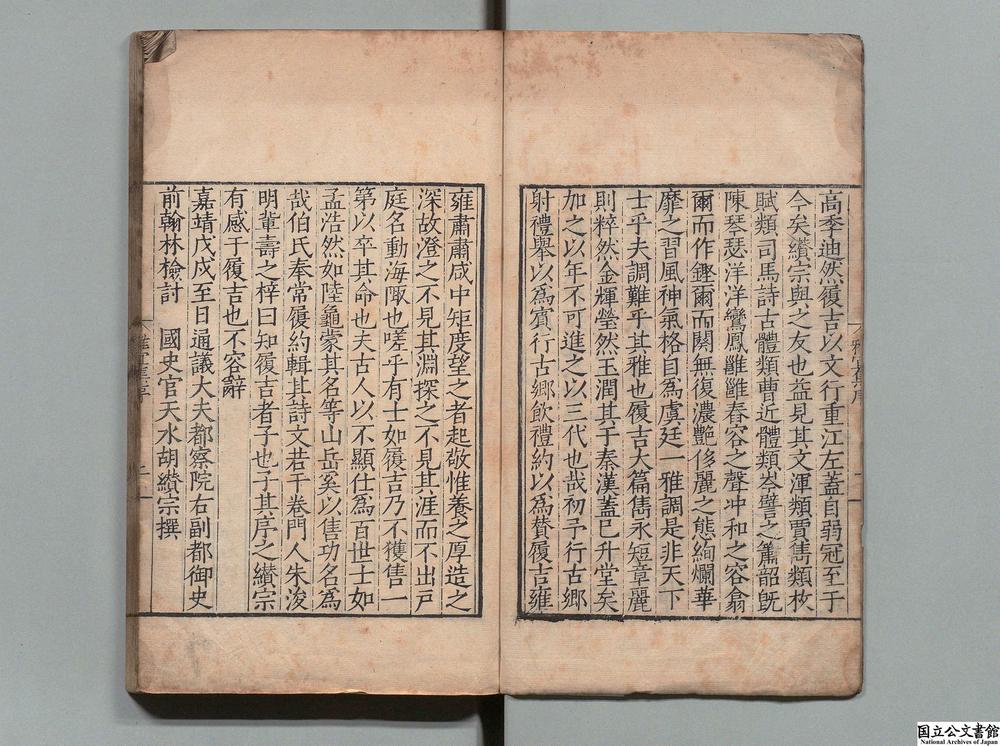 高季迪然履吉以文行重江左蓋自弱冠至于
今矣纉宗與之友也益見其文渾類賈雋類枚
賦類司馬詩古體類曹近體類岑譬之簫韶旣
陳琴瑟洋洋鸞鳳雝雝舂容之聲冲和之容翕
爾而作鏗爾而闋無復濃艷侈麗之態絢爛華
靡之習風神氣格自爲虞廷一雅調是非天下
士乎夫調難乎其雅也履吉大篇雋永短章麗
則粹然金輝瑩然玉潤其于秦漢蓋已升堂矣
加之以年不可進之以三代也哉初予行古鄉
射禮舉以爲賓行古鄉飲禮約以爲贊履吉雍
雍肅肅咸中矩度望之者起敬惟養之厚造之
深故澄之不見其淵探之不見其涯而不出戸
庭名動海陬也嗟乎有士如履吉乃不獲售一
第以卒其命也夫古人以不顯仕爲百世士如
孟浩然如陸龜蒙其名等山岳奚以售功名爲
哉伯氏奉常履約輯其詩文若干卷門人朱浚
明輩壽之梓曰知履吉者子也子其序之纉宗
有感于履吉也不容辭
嘉靖戊戌至日通議大夫都察院右副都御史
前翰林檢討 國史官天水胡纉宗撰
国立公文書館
National Archives of Japan